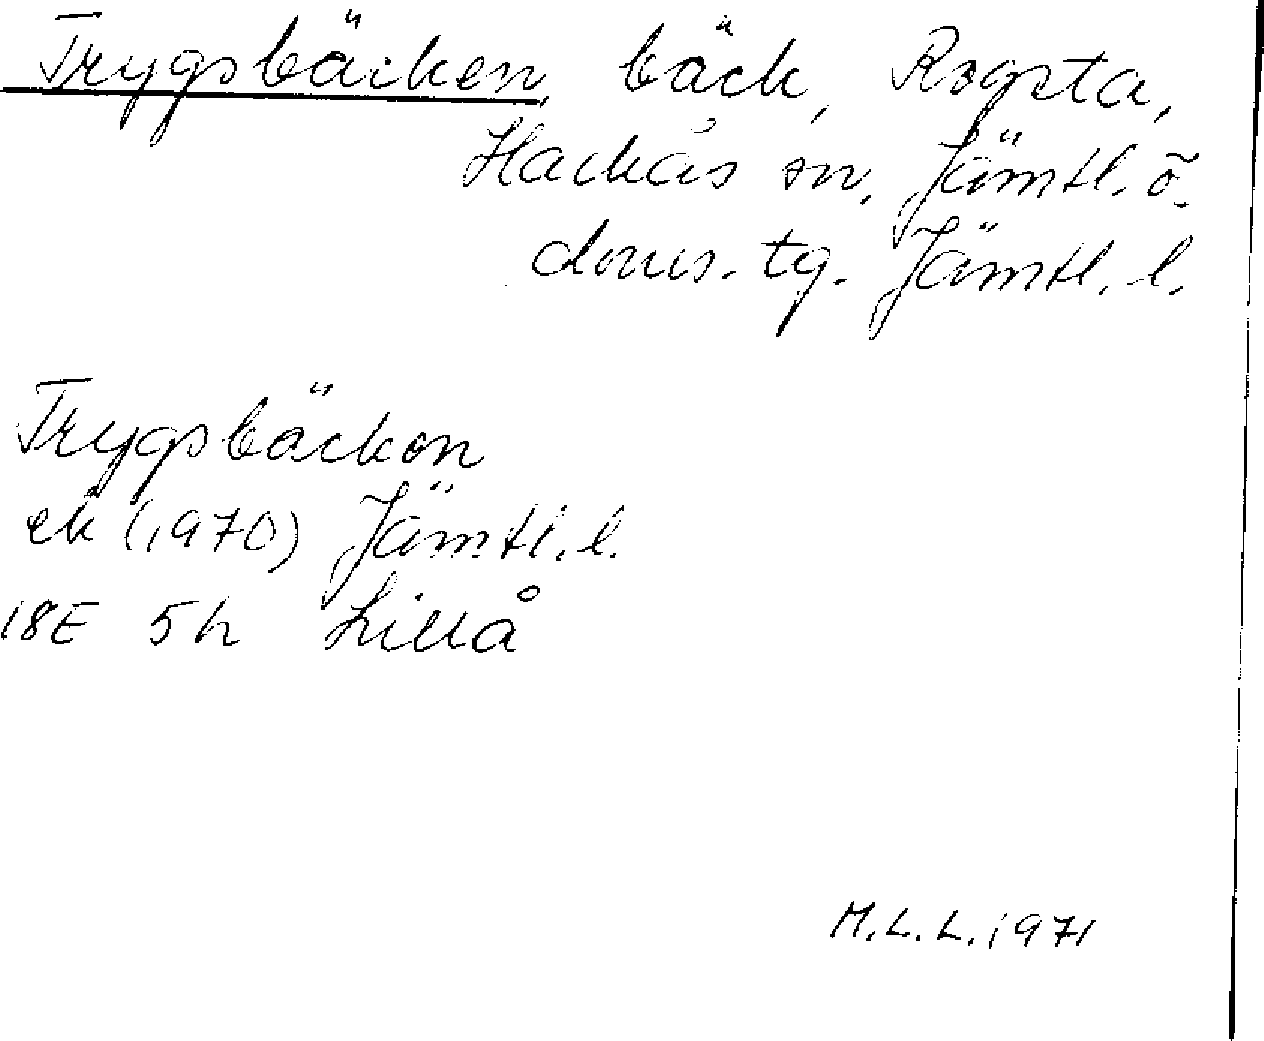 Trygsbäcken, bäck, Rogsta,
Hackås sn, Jämtl. ö.
doms. tg. Jämtl. l.
Trygsbäcken
ek (1970) Jämtl. l.
18E 5h Lillå
M.L.L. 1971